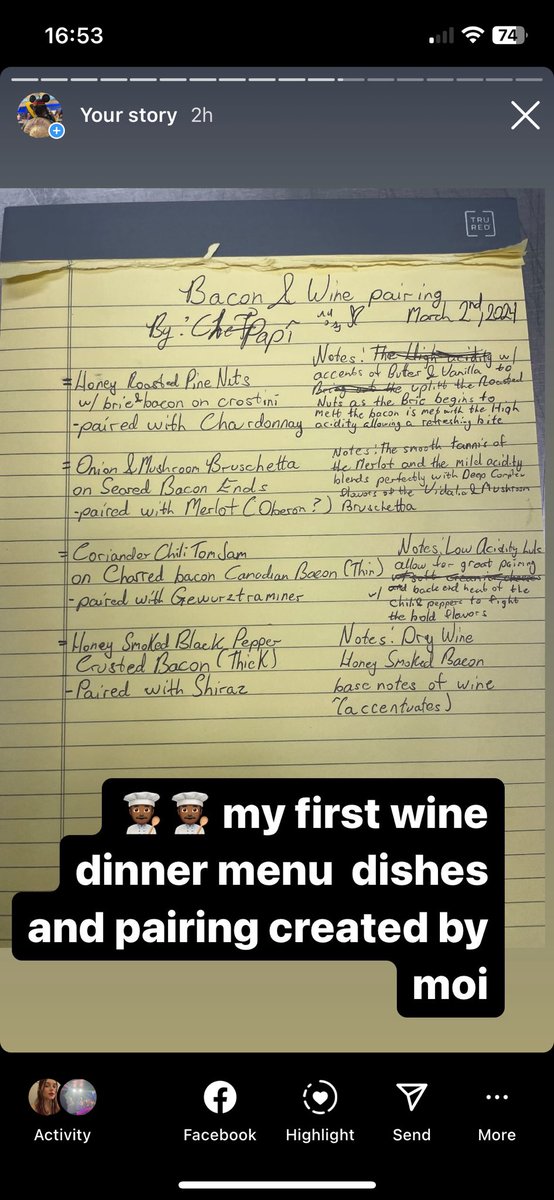 16:53
74
Your story 2h
TRU
RED
Bacon & Wine pairing
March 2nd, 2024
By: Chef Papi
Notes: The High acidity w/
accents of Buter & Vanilla to
Bring out the uplift the Roasted
Nuts as the Brie begins to
melt the bacon is met with the High
acidity allowing a refreshing bite
=Honey Roasted Pine Nuts
w/ brie & bacon on crostini
-paired with Chardonnay
Notes: The smooth tannis of
the Merlot and the mild acidity
blends perfectly with Deep Complex
flavors of the Vidalia & Mushroom
Bruschetta
=Onion & Mushroon Bruschetta
on Seared Bacon Ends
-paired with Merlot (Oberon?)
Notes: Low Acidity
allow for great pairing
w/ and backend heat of the
Chili & peppers to fight
the bold flavors
=Coriander Chili Tom Jam
on Charred bacon Canadian Bacon (Thin)
-paired with Gewurztraminer
=Honey Smoked Black Pepper
Crusted Bacon (Thick)
-Paired with Shiraz
Notes: Dry Wine
Honey Smoked Bacon
base notes of wine
(accentuates)
my first wine
dinner menu dishes
and pairing created by
moi
Activity Facebook Highlight Send More